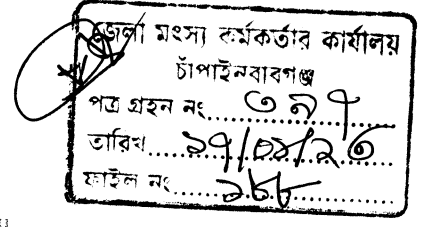 জেলা মৎস্য কর্মকর্তার কার্যালয়
চাঁপাইনবাবগঞ্জ
পত্র গ্রহন নং ৩৯৭
তারিখ
ফাইল নং ১৮৮